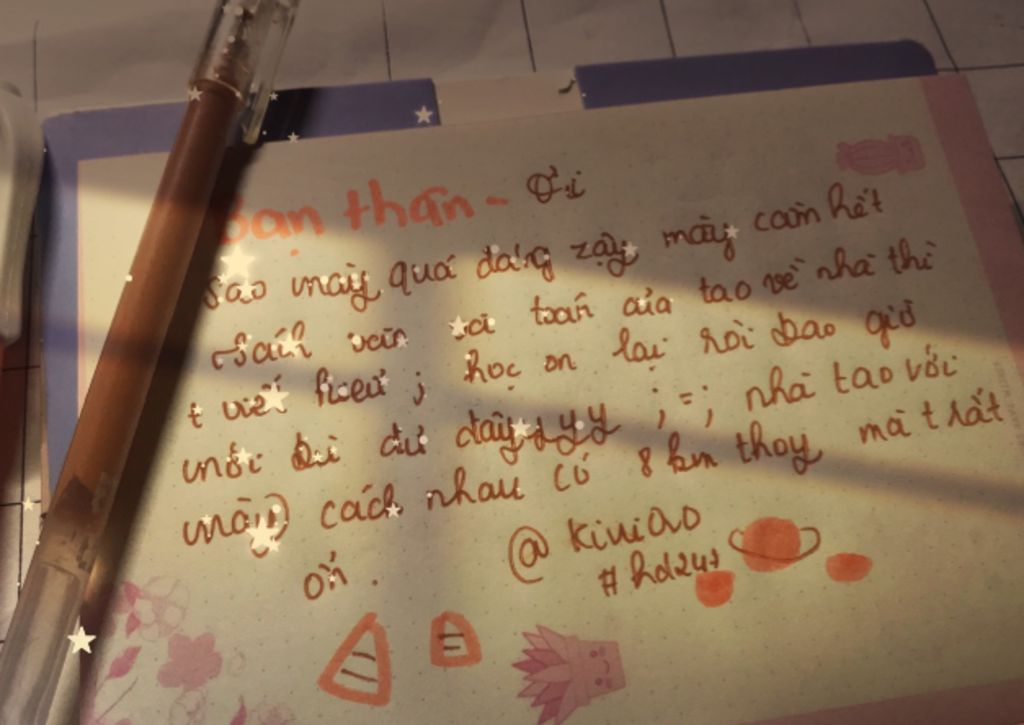 Bạn thân - Ơi
Sao mày quá đáng zậy mày cầm hết
sách văn và toán của tao về nhà thì
t viết kiểu j học ôn lại rồi bao giờ
mới bù đủ đâyyyy ; = ; nhà tao với
mày cách nhau có 8 km thoy mà t rất
ổn .
@ kiwiOvO
# hd24t